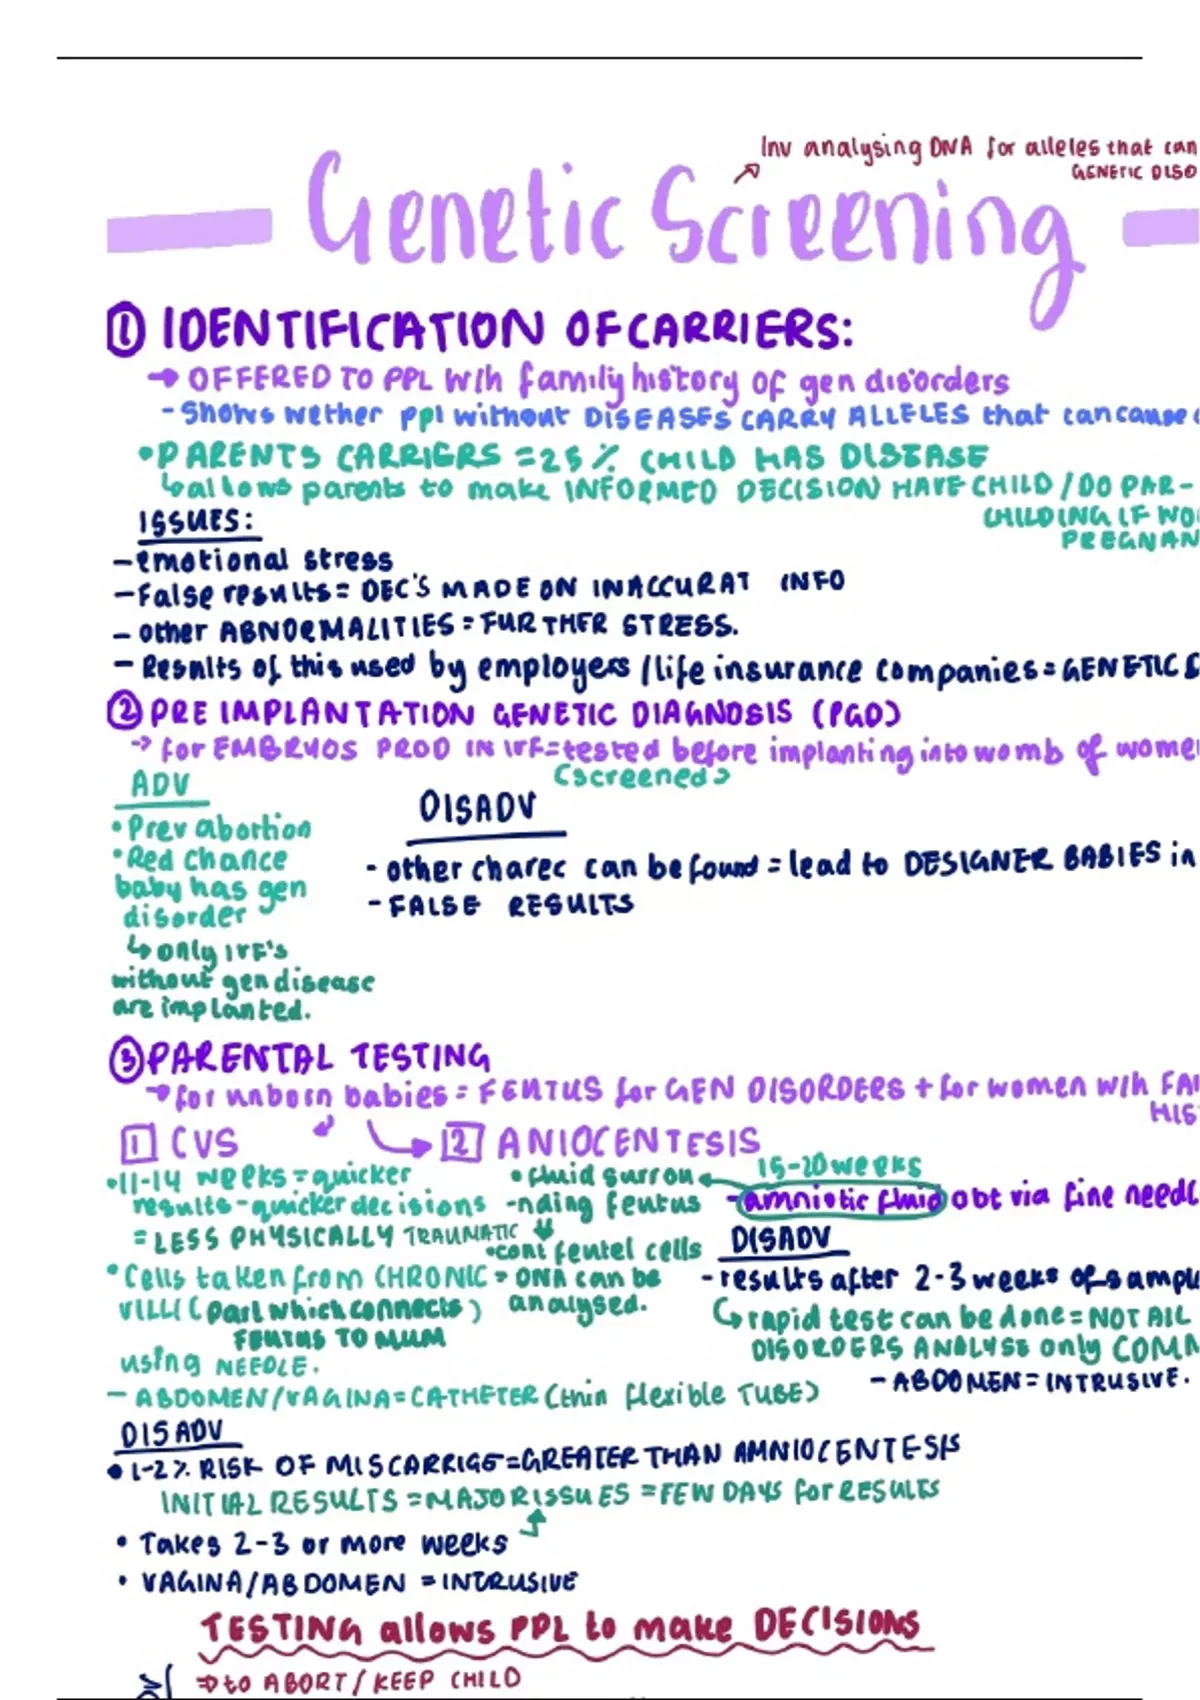 Inv analysing DNA for alleles that can
GENETIC DISO
Genetic Screening
① IDENTIFICATION OF CARRIERS:
→ OFFERED TO PPL W/h family history of gen disorders
- Shows wether ppl without DISEASES CARRY ALLELES that can cause
• PARENTS CARRIERS = 25% CHILD HAS DISEASE
↳ allows parents to make INFORMED DECISION HAVE CHILD / DO PAR-
CHILDING IF WO
PREGNAN
ISSUES:
- emotional stress
- False results = DEC'S MADE ON INACCURAT INFO
- other ABNORMALITIES = FURTHER STRESS.
- Results of this used by employers / life insurance companies = GENETIC
② PRE IMPLANTATION GENETIC DIAGNOSIS (PGD)
→ for EMBRYOS PROD IN IVF = tested before implanting into womb of wome
(screened)
ADV
• Prev abortion
• Red chance
baby has gen
disorder
↳ only IVF's
without gen disease
are implanted.
DISADV
- other charec can be found = lead to DESIGNER BABIES in
- FALSE RESULTS
③ PARENTAL TESTING
→ for unborn babies = FEUTUS for GEN DISORDERS + for women w/h FA
HIS
1 CVS
• 11-14 weeks = quicker
results - quicker decisions
= LESS PHYSICALLY TRAUMATIC
• Cells taken from CHRONIC
VILLI (part which connects)
FEUTUS TO MUM
using NEEDLE.
- ABDOMEN/VAGINA = CATHETER (thin flexible TUBE)
2 ANIOCENTESIS
• fluid surrou
-nding feutus
• cont feutel cells
→ DNA can be
analysed.
15-20 weeks
- amniotic fluid obt via fine needl
DISADV
- results after 2-3 weeks of sampl
↳ rapid test can be done = NOT All
DISORDERS ANALYSE only COMM
- ABDOMEN = INTRUSIVE.
DISADV
• 1-2% RISK OF MISCARRIGE = GREATER THAN AMNIOCENTESIS
INITIAL RESULTS = MAJOR ISSUES = FEW DAYS for RESULTS
• Takes 2-3 or more weeks
• VAGINA/ABDOMEN = INTRUSIVE
TESTING allows PPL to make DECISIONS
⇒ to ABORT / KEEP CHILD